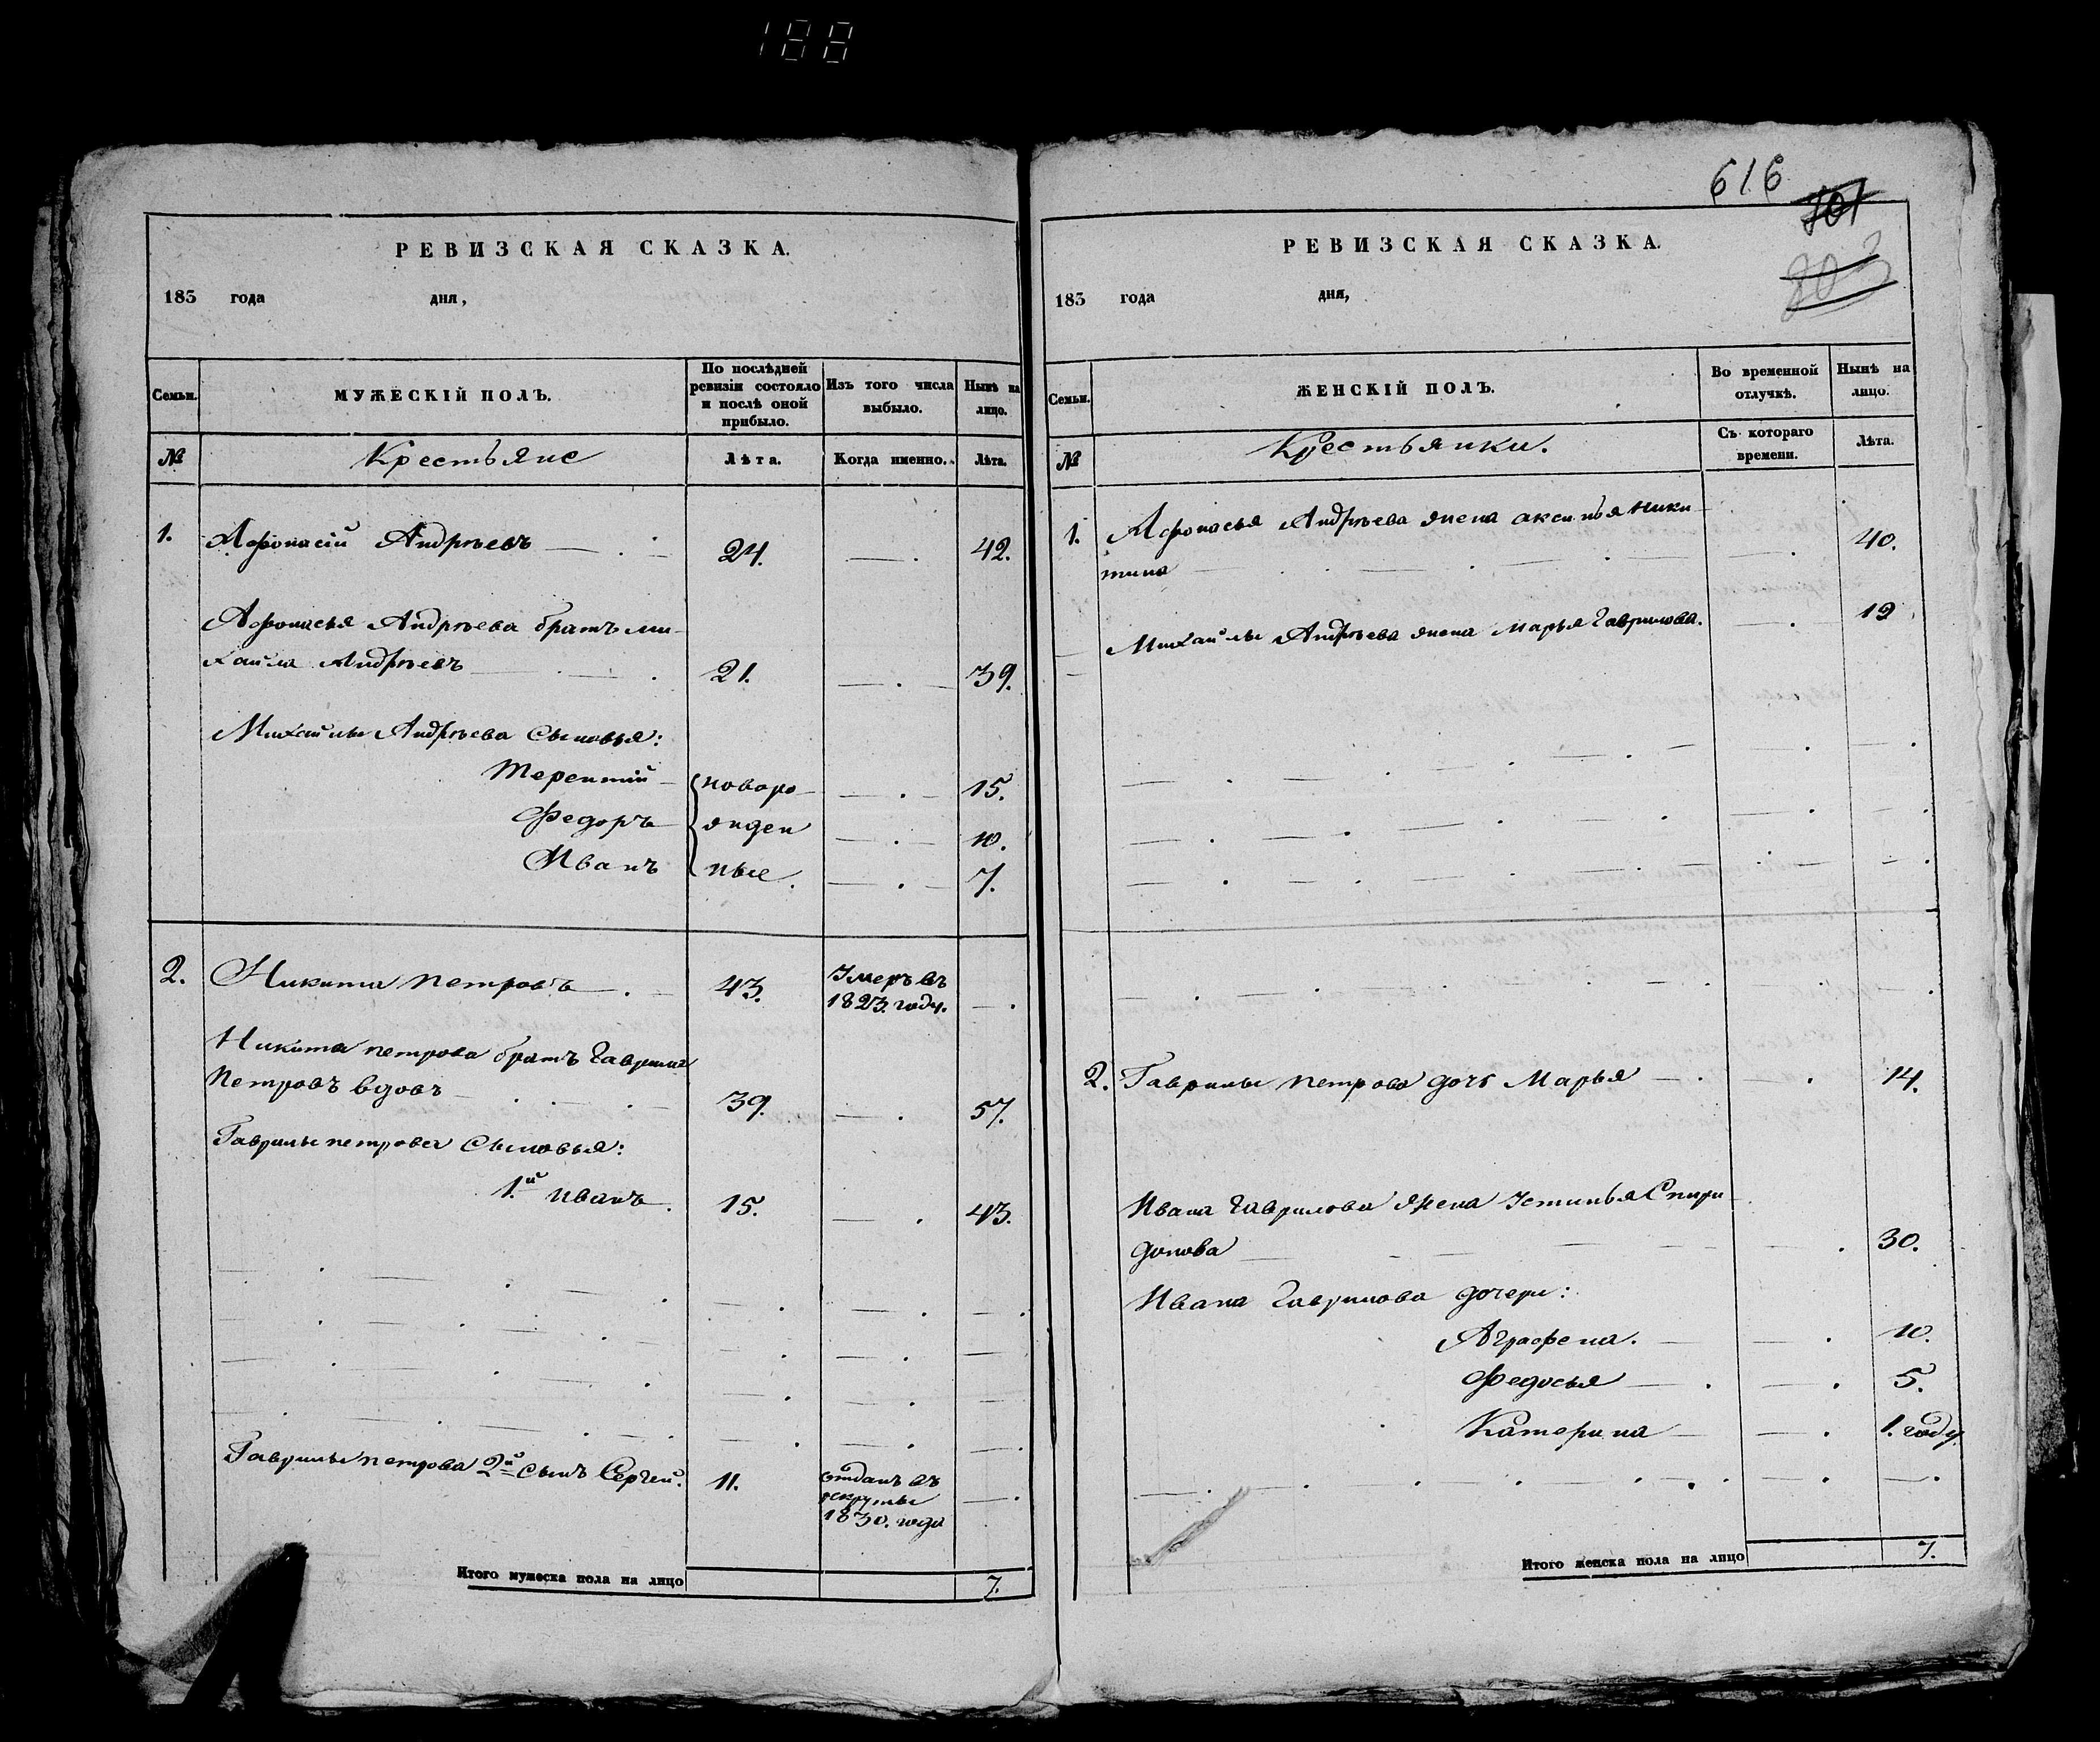 188
РЕВИЗСКАЯ СКАЗКА.
183 года дня,
Семьи.
МУЖЕСКІЙ ПОЛЪ.
По послѣдней
ревизіи состояло
и послѣ оной
прибыло.
Изъ того числа
выбыло.
Нынѣ на
лицо.
№
Крестьяне
Лѣта.
Когда именно.
Лѣта.
1. Афонасій Андрѣевъ 24. 42.
Афонасья Андрѣева братъ ми-
хайла Андрѣевъ 21. 39.
Михайлы Андрѣева сыновья:
Терентій новоро 15.
Федоръ жден 10.
Иванъ ные. 7.
2. Никита петровъ 43. Умеръ въ
1823. году.
Никита петрова братъ Гаврила
Петровъ вдовъ 39. 57.
Гаврилы петрова Сыновья:
1.й иванъ. 15. 43.
Гаврилы петрова 2й сынъ Сергей. 11. отданъ въ
рекруты
1830. года
Итого мужеска пола на лицо 7.
616
701
803
РЕВИЗСКАЯ СКАЗКА.
183 года дня,
Семьи.
ЖЕНСКІЙ ПОЛЪ.
Во временной
отлучкѣ.
Нынѣ на
лицо.
№
Крестьянки.
Съ котораго
времени.
Лѣта.
1. Афонасья Андрѣева жена аксинья Ники-
тина 40.
Михайлы Андрѣева жена марья Гаврилова. 19
2. Гаврилы петрова дочь Марья 14.
Ивана Гаврилова жена Устинья Спири-
донова 30.
Ивана Гаврилова дочери:
Аграфена. 10.
Федосья 5.
Катерина 1. году
Итого женска пола на лицо 7.